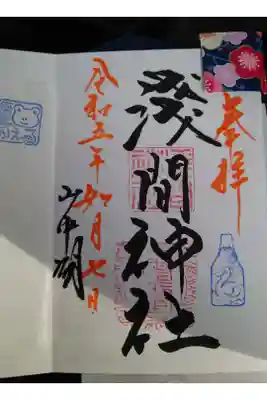 奉拝
淺間神社
山中湖
令和五年如月七日